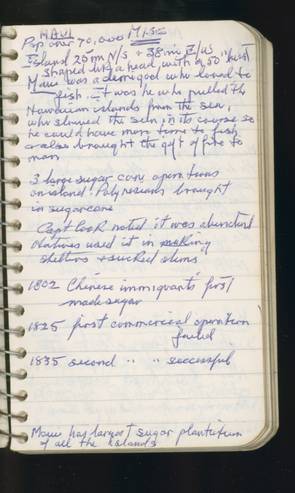 MAUI
Pop over 70,000 MISC
Island 25 mi N/S + 38 mi E/W
shaped like a head, with a so "bust"
Maui was a demigod who loved to
fish. It was he who pulled the
Hawaiian islands from the sea,
who slowed the sun in its course so
he could have more time to fish
& also brought the gift of fire to
man
3 large sugar cane operations
on island. Polynesians brought
in sugarcane
Capt Cook noted it was abundant
Natives used it in making
shelters & sucked stems
1802 Chinese immigrants first
made sugar
1825 first commercial operation
failed
1835 second " " successful
Maui has largest sugar plantation
of all the islands